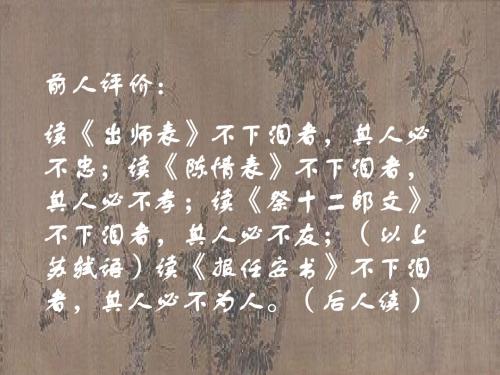 前人评价：
读《出师表》不下泪者，其人必
不忠；读《陈情表》不下泪者，
其人必不孝；读《祭十二郎文》
不下泪者，其人必不友；（以上
苏轼语）读《报任安书》不下泪
者，其人必不为人。（后人续）